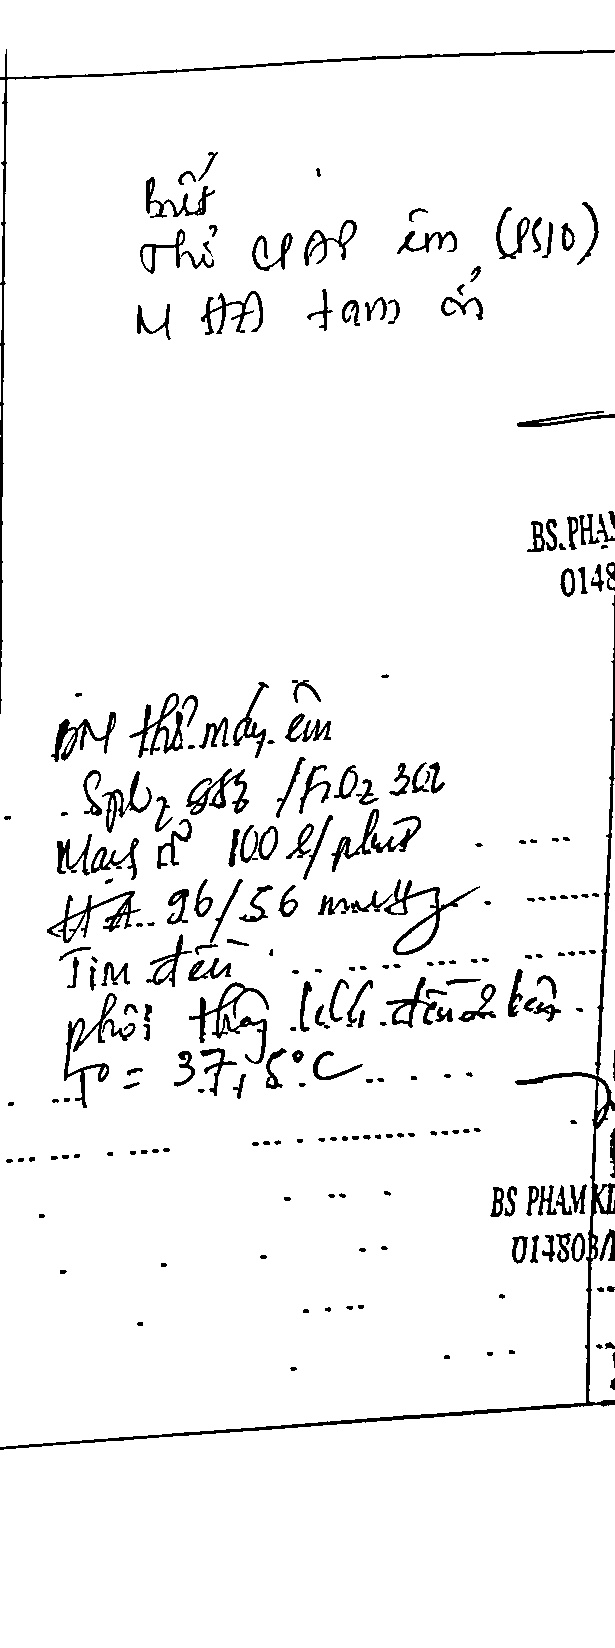 biết
thở CPAP êm (PS10)
M HA tạm ổn
BS.PHẠM
0148
BN thở máy êm
SpO2 98% /FiO2 30%
Mạch rõ 100 l/phút
HA 96/56 mmHg
Tim đều
phổi thông khí đều 2 bên
T° = 37,5°C
BS PHAM KI
014803/